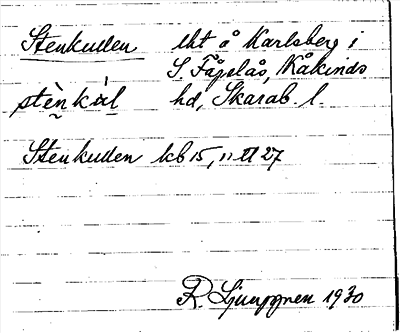 Stenkullen lht å Karlsberg i
S. Fågelås, Kåkinds
stènkùl hd, Skarab. l.
Stenkullen kb 15, 11 tl 27
R. Ljunggren 1930